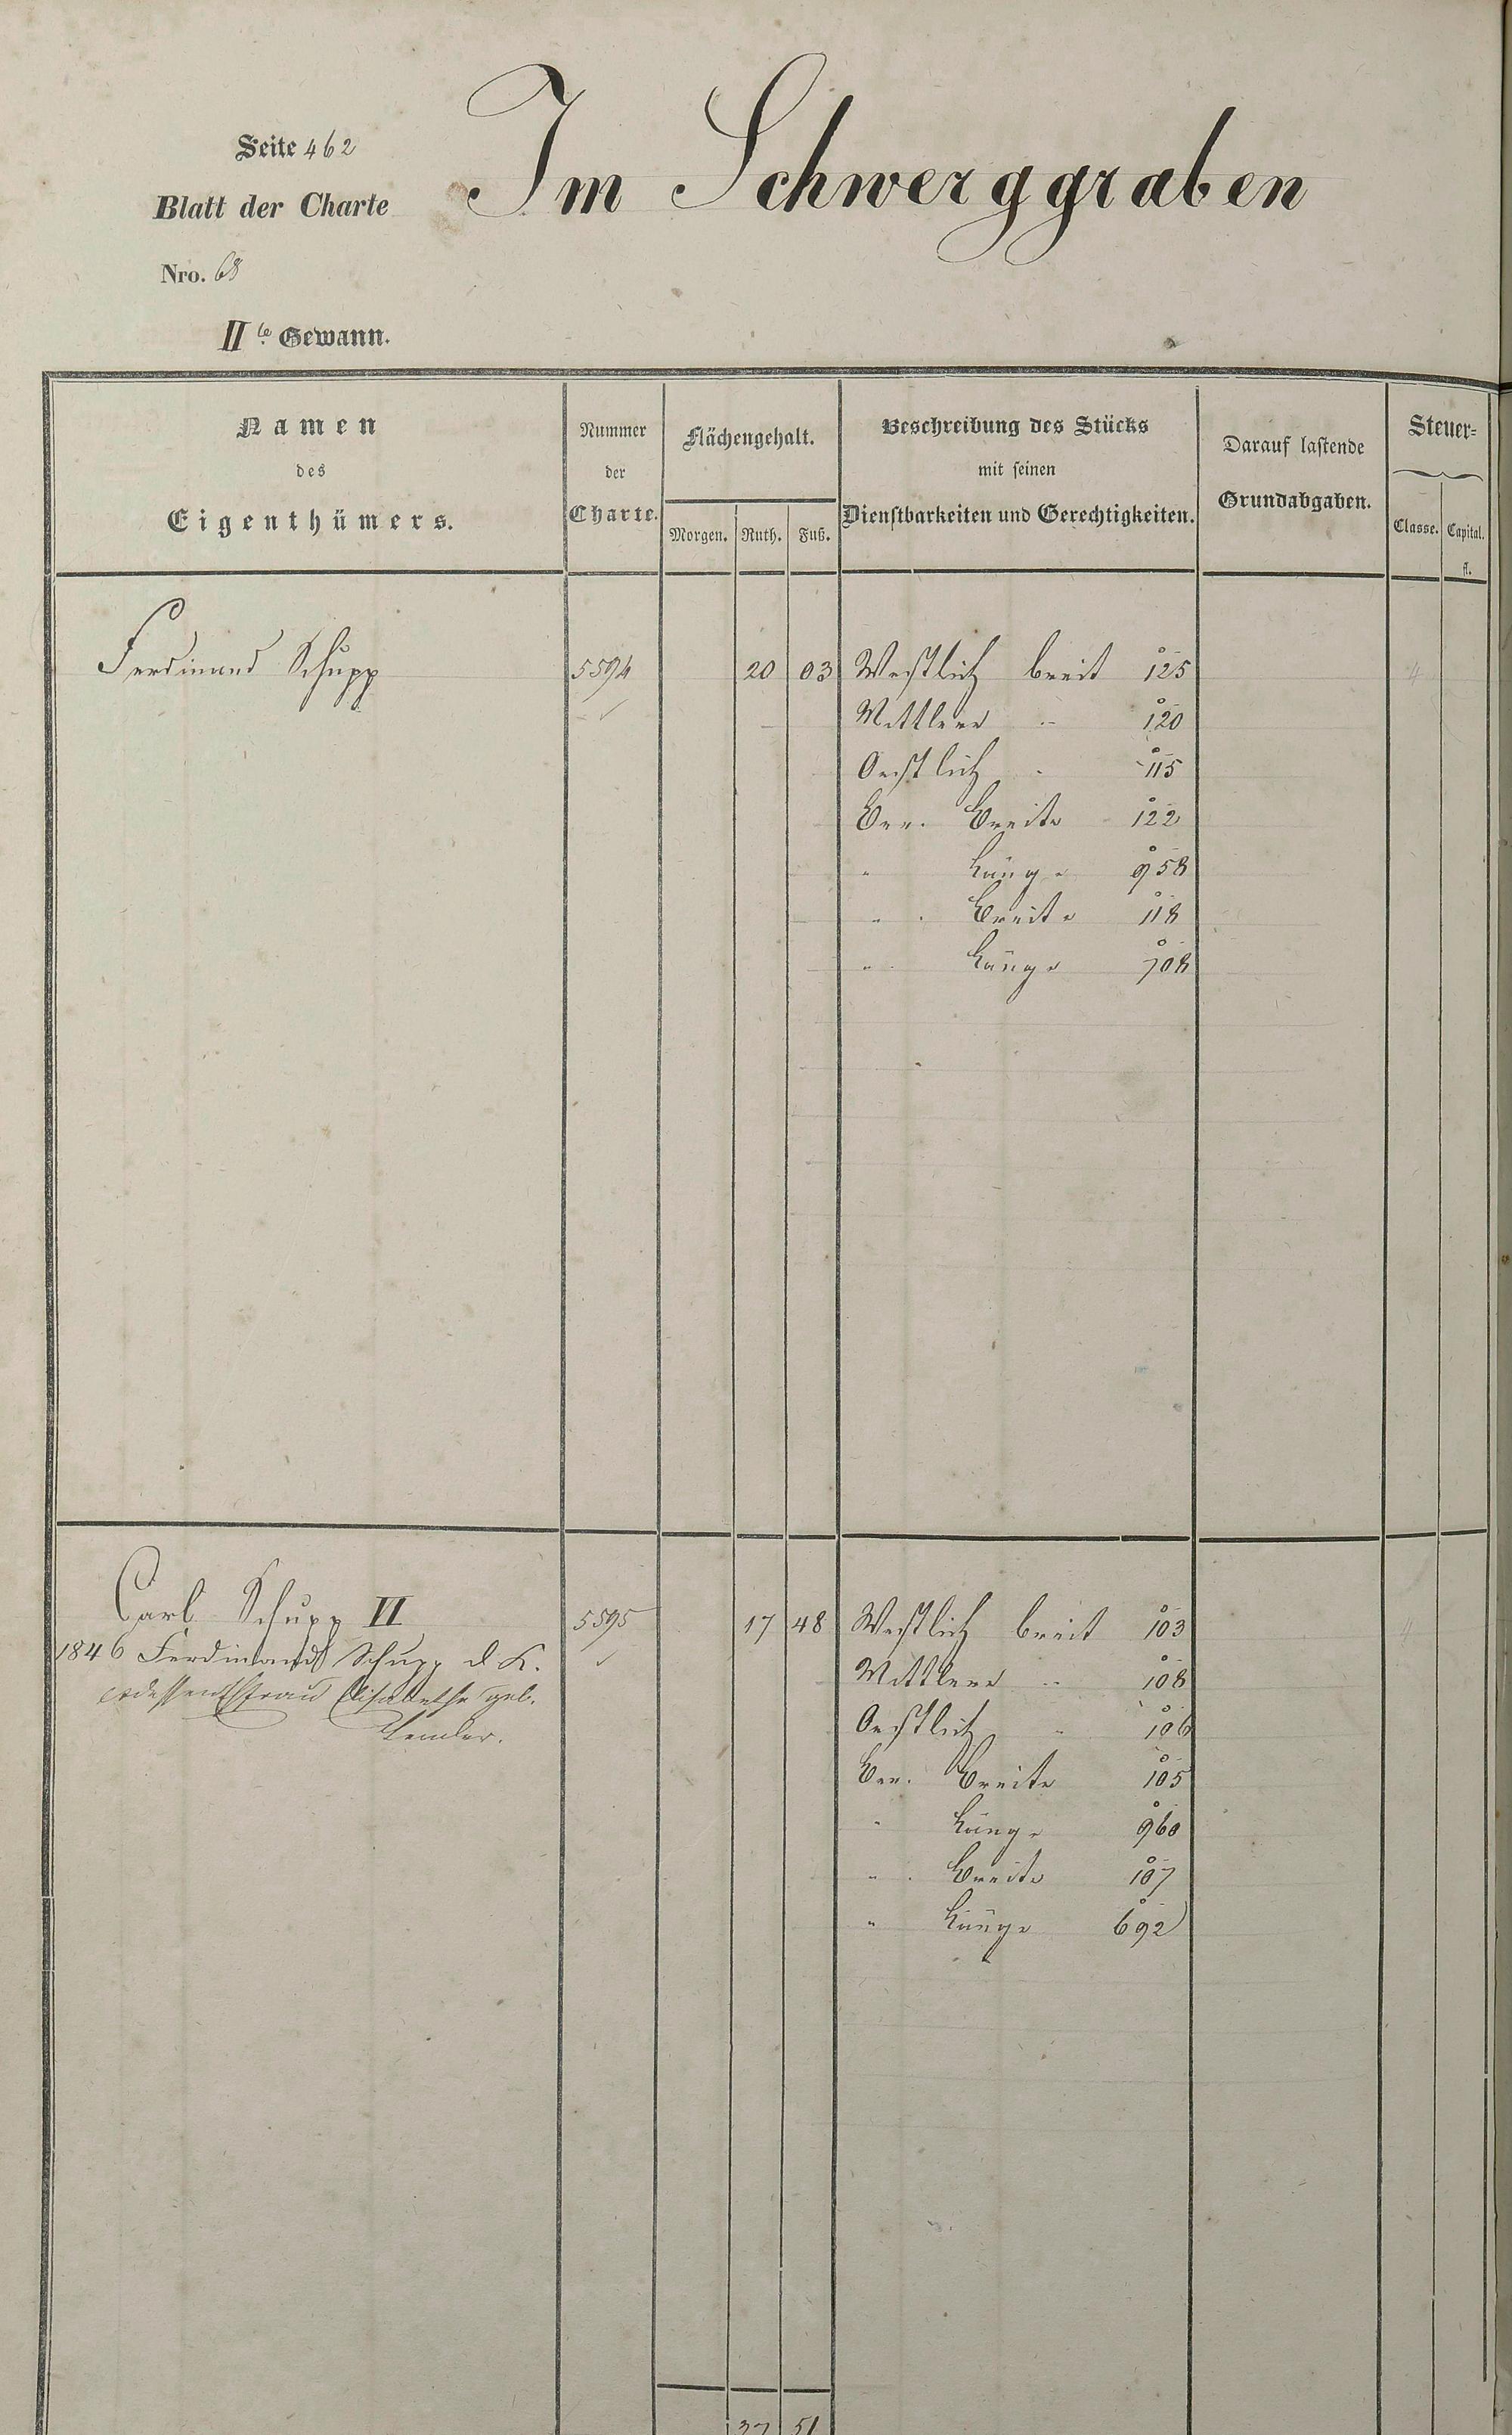 Seite 462
Im Schwerggraben
Blatt der Charte
Nro. 68
IIte Gewann.
Namen
des
Eigenthümers.
Nummer
der
Charte.
Flächengehalt.
Morgen. Ruth. Fuß.
Beschreibung des Stücks
mit seinen
Dienstbarkeiten und Gerechtigkeiten.
Darauf lastende
Grundabgaben.
Steuer=
Classe. Capital.
fl.
Ferdinand Schupp 5594 20 03 Westlich breit 125 4
Mittlere " 120
Oestlich " 115
Ber. Breite 122
" Länge 958
" Breite 118
" Länge 708
Carl Schupp II 5595 17 48 Westlich breit 103 4
1846 Ferdinand Schupp d. K. Mittlere " 108
Ehefrau Elisabethe geb. Oestlich " 106
Ber. Breite 105
" Länge 960
" Breite 107
" Länge 692
37 51